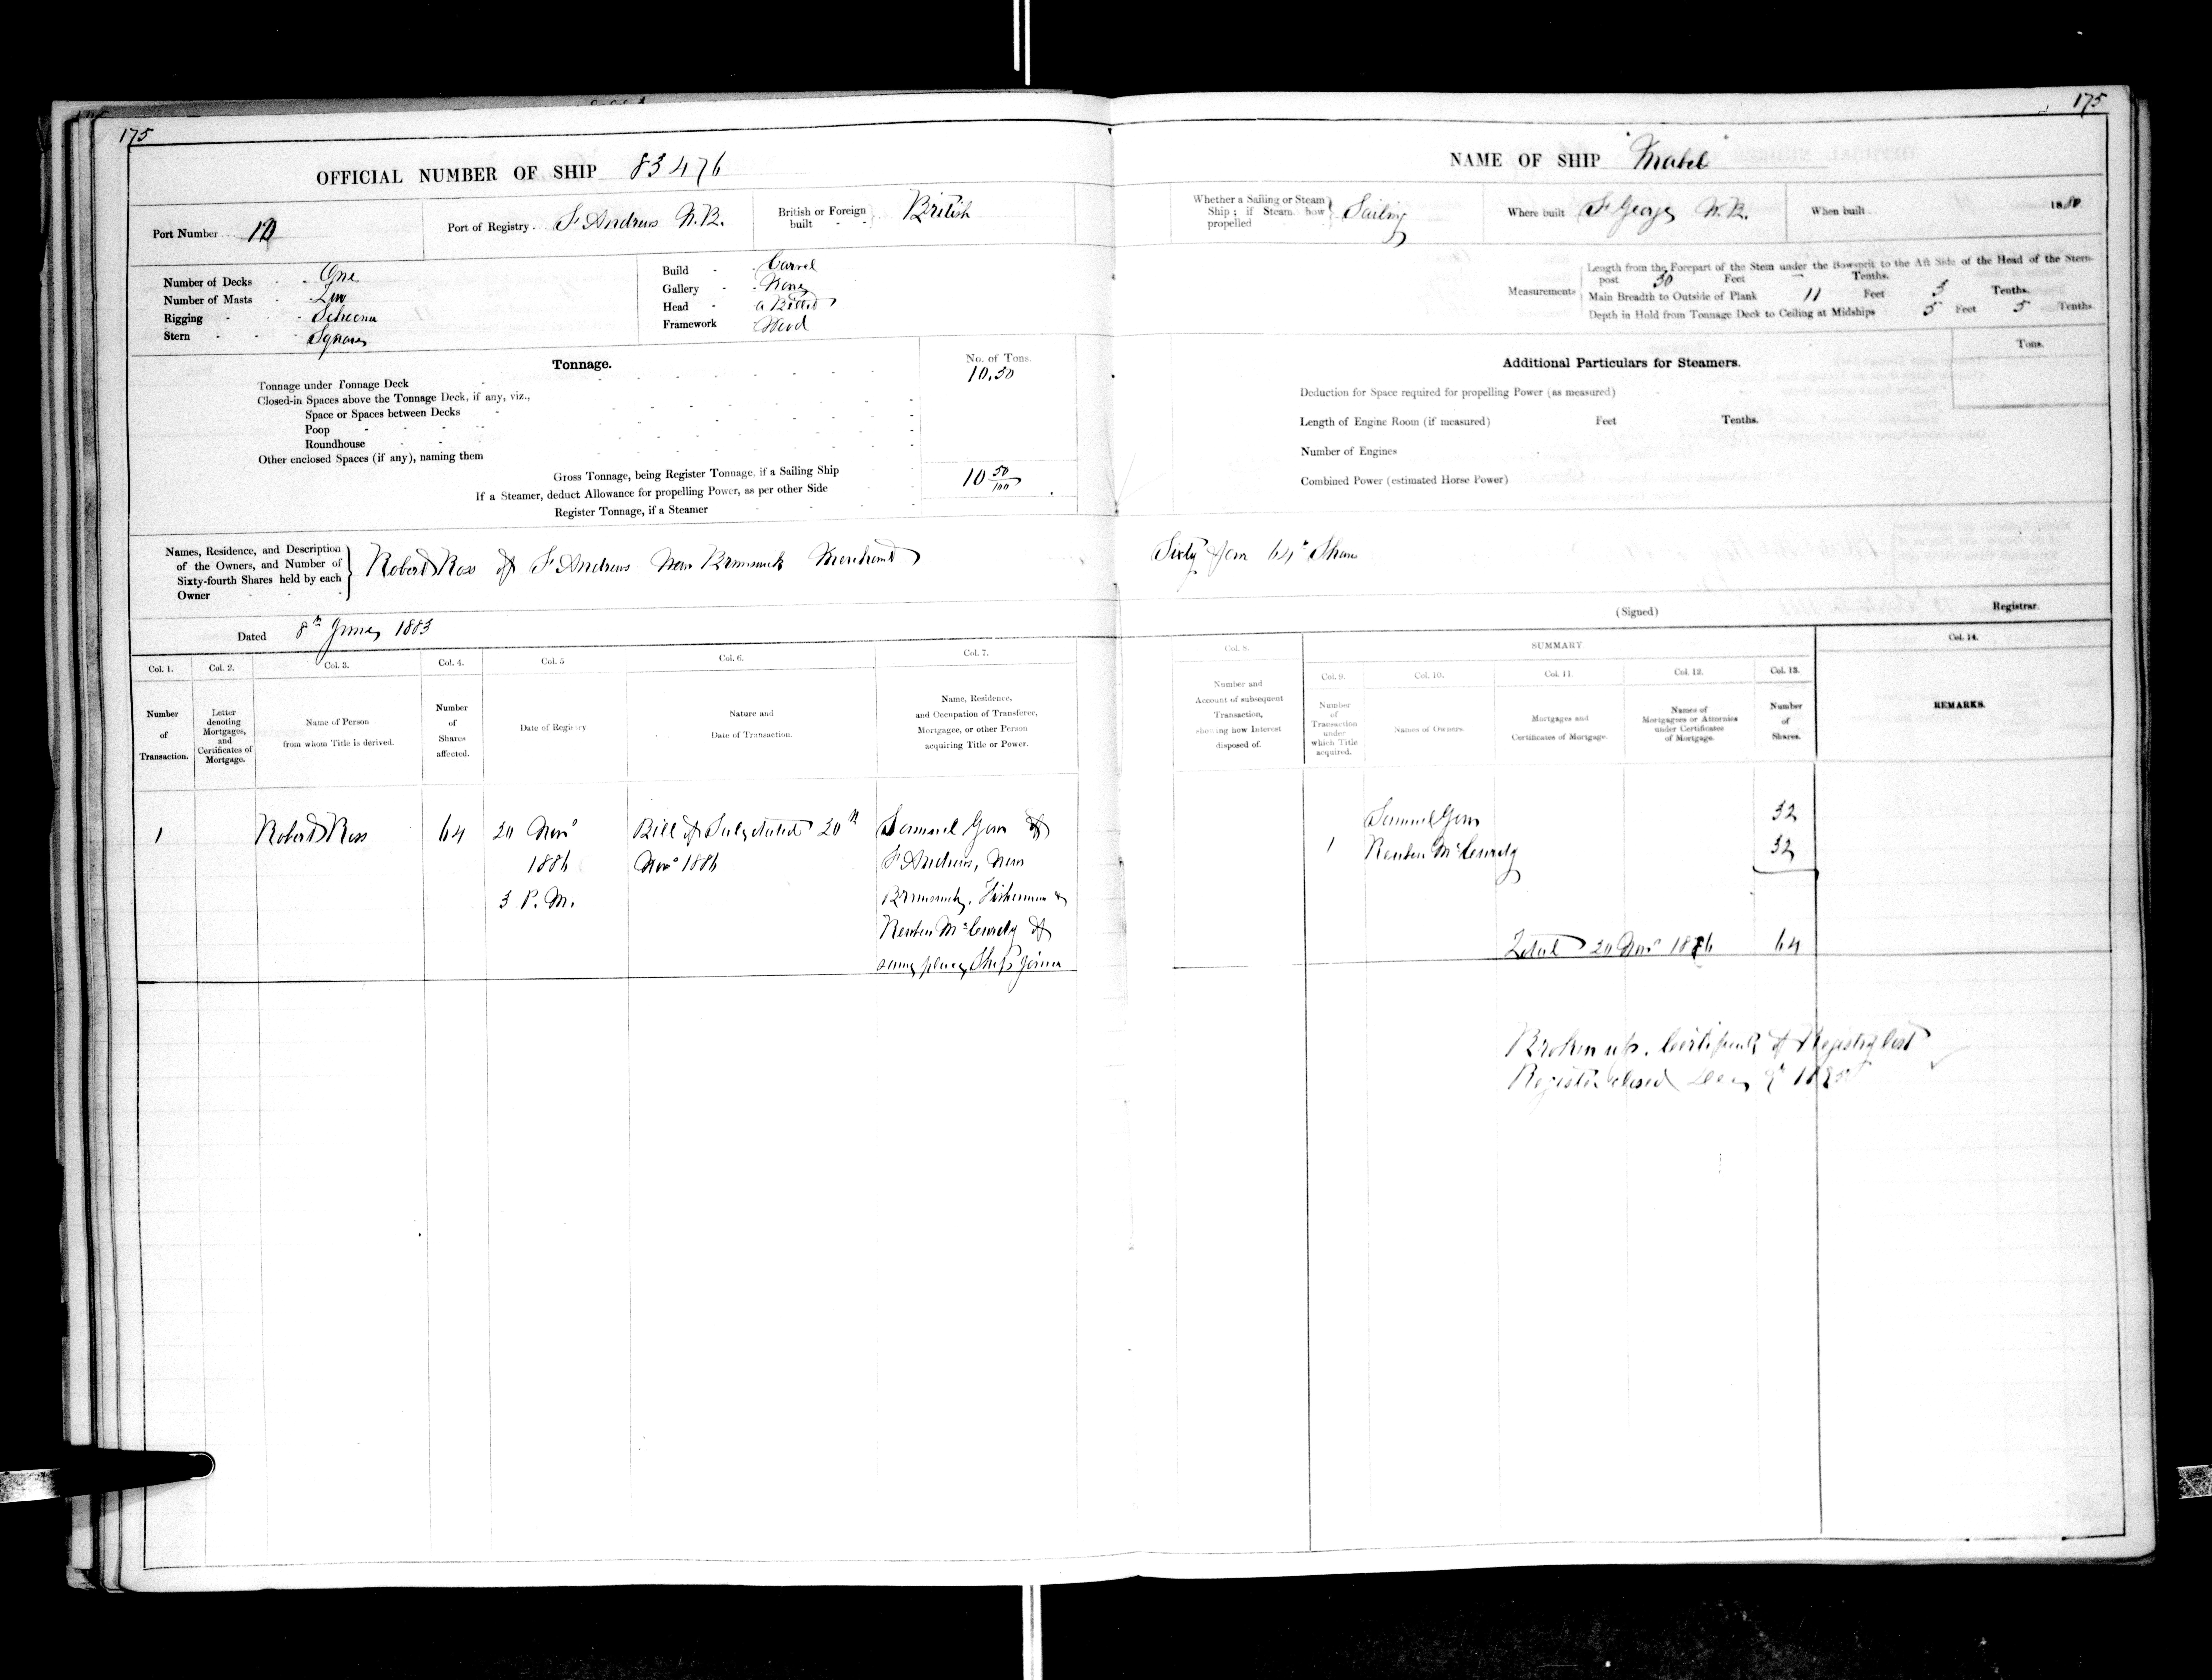 175
175
OFFICIAL NUMBER OF SHIP 83476
NAME OF SHIP "Mabel"
Port Number 10
Port of Registry St Andrews N.B.
British or Foreign built British
Whether a Sailing or Steam Ship; if Steam how propelled Sailing
Where built St George N.B.
When built 1880
Number of Decks One
Number of Masts Two
Rigging Schooner
Stern Square
Build Carvel
Gallery None
Head a Billet
Framework Wood
Measurements
Length from the Forepart of the Stem under the Bowsprit to the Aft Side of the Head of the Stern-
post 30 Feet — Tenths.
Main Breadth to Outside of Plank 11 Feet 3 Tenths.
Depth in Hold from Tonnage Deck to Ceiling at Midships 5 Feet 5 Tenths.
Tonnage.
No. of Tons.
Tonnage under Tonnage Deck 10.50
Closed-in Spaces above the Tonnage Deck, if any, viz.,
Space or Spaces between Decks
Poop
Roundhouse
Other enclosed Spaces (if any), naming them
Gross Tonnage, being Register Tonnage, if a Sailing Ship 10 50/100
If a Steamer, deduct Allowance for propelling Power, as per other Side
Register Tonnage, if a Steamer
Additional Particulars for Steamers.
Tons.
Deduction for Space required for propelling Power (as measured)
Length of Engine Room (if measured) Feet Tenths.
Number of Engines
Combined Power (estimated Horse Power)
Names, Residence, and Description
of the Owners, and Number of
Sixty-fourth Shares held by each
Owner
Robert Ross of St Andrews New Brunswick Merchant Sixty four 64th Shares
Dated 8th June 1883
(Signed) Registrar.
Col. 1.
Number
of
Transaction.
Col. 2.
Letter
denoting
Mortgages,
and
Certificates of
Mortgage.
Col. 3.
Name of Person
from whom Title is derived.
Col. 4.
Number
of
Shares
affected.
Col. 5
Date of Registry
Col. 6.
Nature and
Date of Transaction.
Col. 7.
Name, Residence,
and Occupation of Transferee,
Mortgagee, or other Person
acquiring Title or Power.
Col. 8.
Number and
Account of subsequent
Transaction,
showing how Interest
disposed of.
SUMMARY
Col. 9.
Number
of
Transaction
under
which Title
acquired.
Col. 10.
Names of Owners.
Col. 11.
Mortgages and
Certificates of Mortgage.
Col. 12.
Names of
Mortgagees or Attornies
under Certificates
of Mortgage.
Col. 13.
Number
of
Shares.
Col. 14.
REMARKS.
1
Robert Ross
64
20 Novr
1886
3 P.M.
Bill of Sale dated 20th
Novr 1886
Samuel Gow of
St Andrews, New
Brunswick, Fisherman &
Reuben McCurdy of
same place, Ship joiner
Samuel Gow 32
1 Reuben McCurdy 32
Total 20 Novr 1886 64
Broken up. Certificate of Registry lost
Register closed